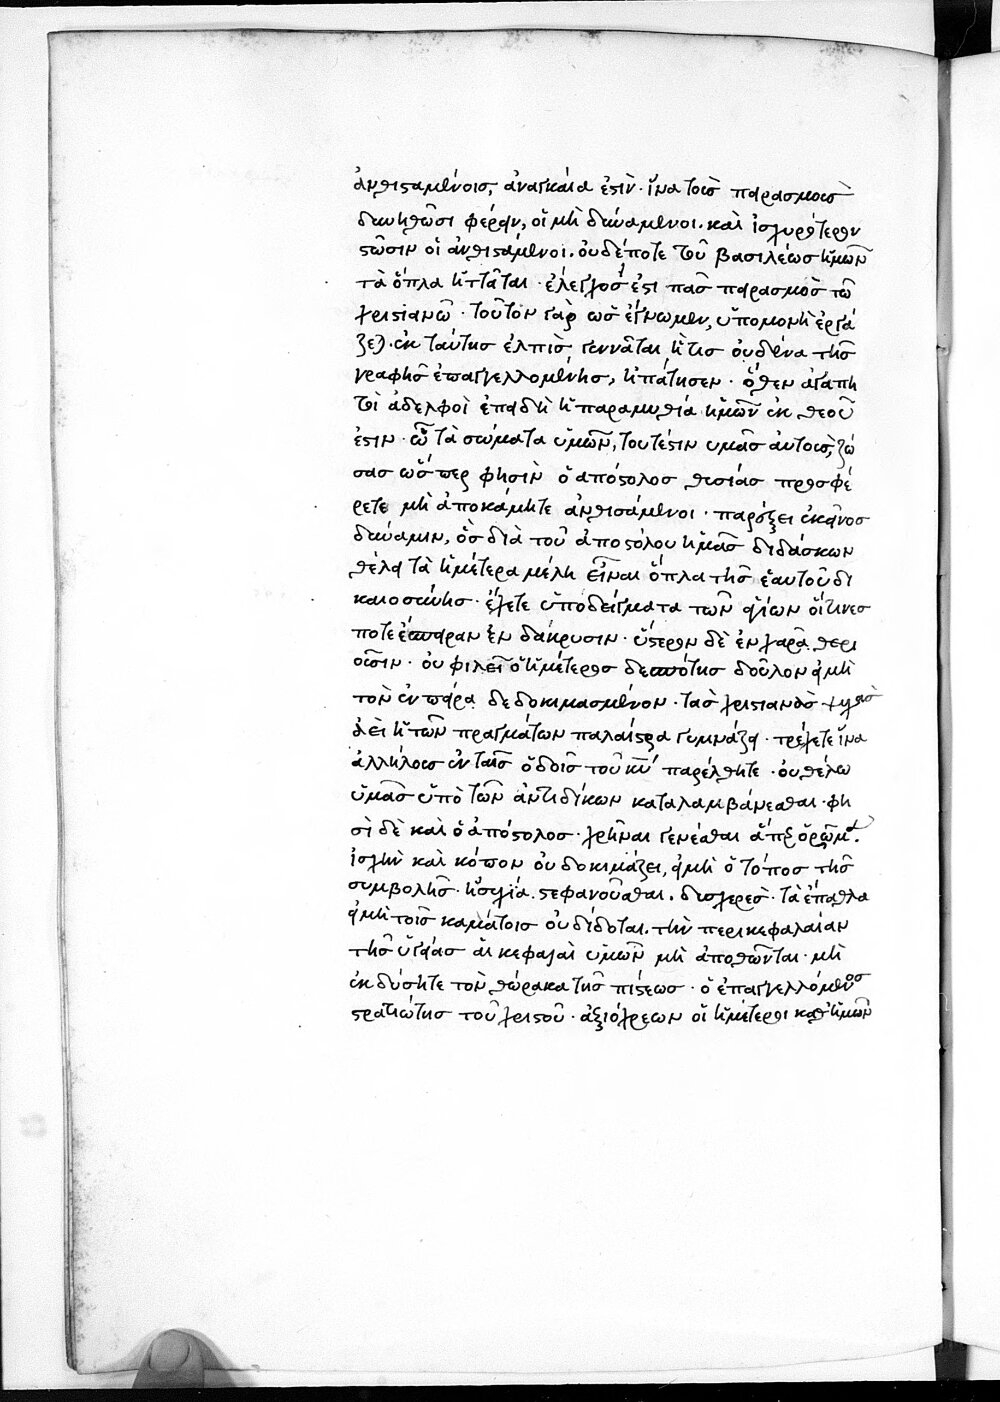 ἀνθισαμένοισ, ἀναγκάια ἐστὶν · ἵνα τοισ πειρασμοισ
δυνηθῶσι φέρειν, οἱ μὴ δυνάμενοι. καὶ ἰσχυρότεροι
στῶσιν οἱ ἀνθιστάμενοι. ουδέποτε τοῦ βασιλέωσ ἡμῶν
τὰ ὅπλα ἡττᾶται · ἐλεγχόσ ἐστι πᾶσ πειρασμὸσ τῶ
χριστιανῶ · τοῦτον γὰρ ωσ ἔγνωμεν, ὑπομονὴ ἐργά
ζεται · ἐκ ταύτησ ἐλπὶσ γεννᾶται, ἥτισ ὀυδένα τησ
γραφησ ἐπαγγελλομένησ, ἠπάτησεν · ὅθεν ἀγαπη
τὸι ἀδελφοὶ ἐπειδὴ ἡ παραμυθία ἡμῶν ἐκ θεοῦ
ἐστιν · ὦ τὰ σώματα ὑμῶν, τουτέστιν υμᾶσ ἀυτοισ, ζώ
σασ ὥσπερ φησὶν ὁ ἀπόστολοσ θυσίασ προσφέ
ρετε μὴ ἀποκάμητε ἀνθιστάμενοι · παρέξει ἐκεῖνοσ
δύναμιν, ὃσ διὰ τοῦ ἀποστόλου ἡμᾶσ διδάσκων
θέλει τὰ ἡμέτερα μέλη εἶναι ὅπλα τῆσ ἑαυτοῦ δι
καιοσύνησ · ἔχετε ὑποδείγματα τῶν ἁγίων οἵτινεσ
ποτε ἔσπειραν ἐν δάκρυσιν · ὕστερον δὲ ἐν χαρᾶ θερι
οῦσιν · ὀυ φιλεῖ ὁ ἡμέτεροσ δεσπότησ δοῦλον εἰ μὴ
τὸν ἐν πείρα δεδοκιμασμένον · τασ χριστιανὰσ ψυχασ
ἀεὶ ἡ τῶν πραγμάτων παλαίστρα γυμνάζει · τρέχετε ἵνα
ἀλλήλοισ ἐν ταῖσ ὁδοῖσ τοῦ κυ παρέλθητε · ὀυ θέλω
ὑμᾶσ ὑπὸ τῶν ἀντιδίκων καταλαμβάνεσθαι · φη
σὶ δὲ καὶ ὁ ἀπόστολοσ · χρῆναι γενέσθαι ἅπερ ὁρῶμεν.
ἰσχὺν καὶ κόπον ὀυ δοκιμάζει, εἰ μὴ ὁ τόποσ τῆσ
συμβολῆσ · ἡσυχία στεφανοῦσθαι · δυσχερεσ · τὰ ἔπαθλα
εἰ μὴ τοῖσ καμάτοισ οὐ δίδοται. τὴν περικεφαλαίαν
τῆσ ὑγείασ ἁι κεφαλαὶ ὑμῶν μὴ ἀποθῶνται · μὴ
ἐκδύσητε τὸν θώρακα τῆσ πίστεωσ · ὁ ἐπαγγελλόμενοσ
στρατιώτησ τοῦ χριστοῦ · ἀξιόχρεων οἱ ἡμέτεροι καθ' ἡμῶν